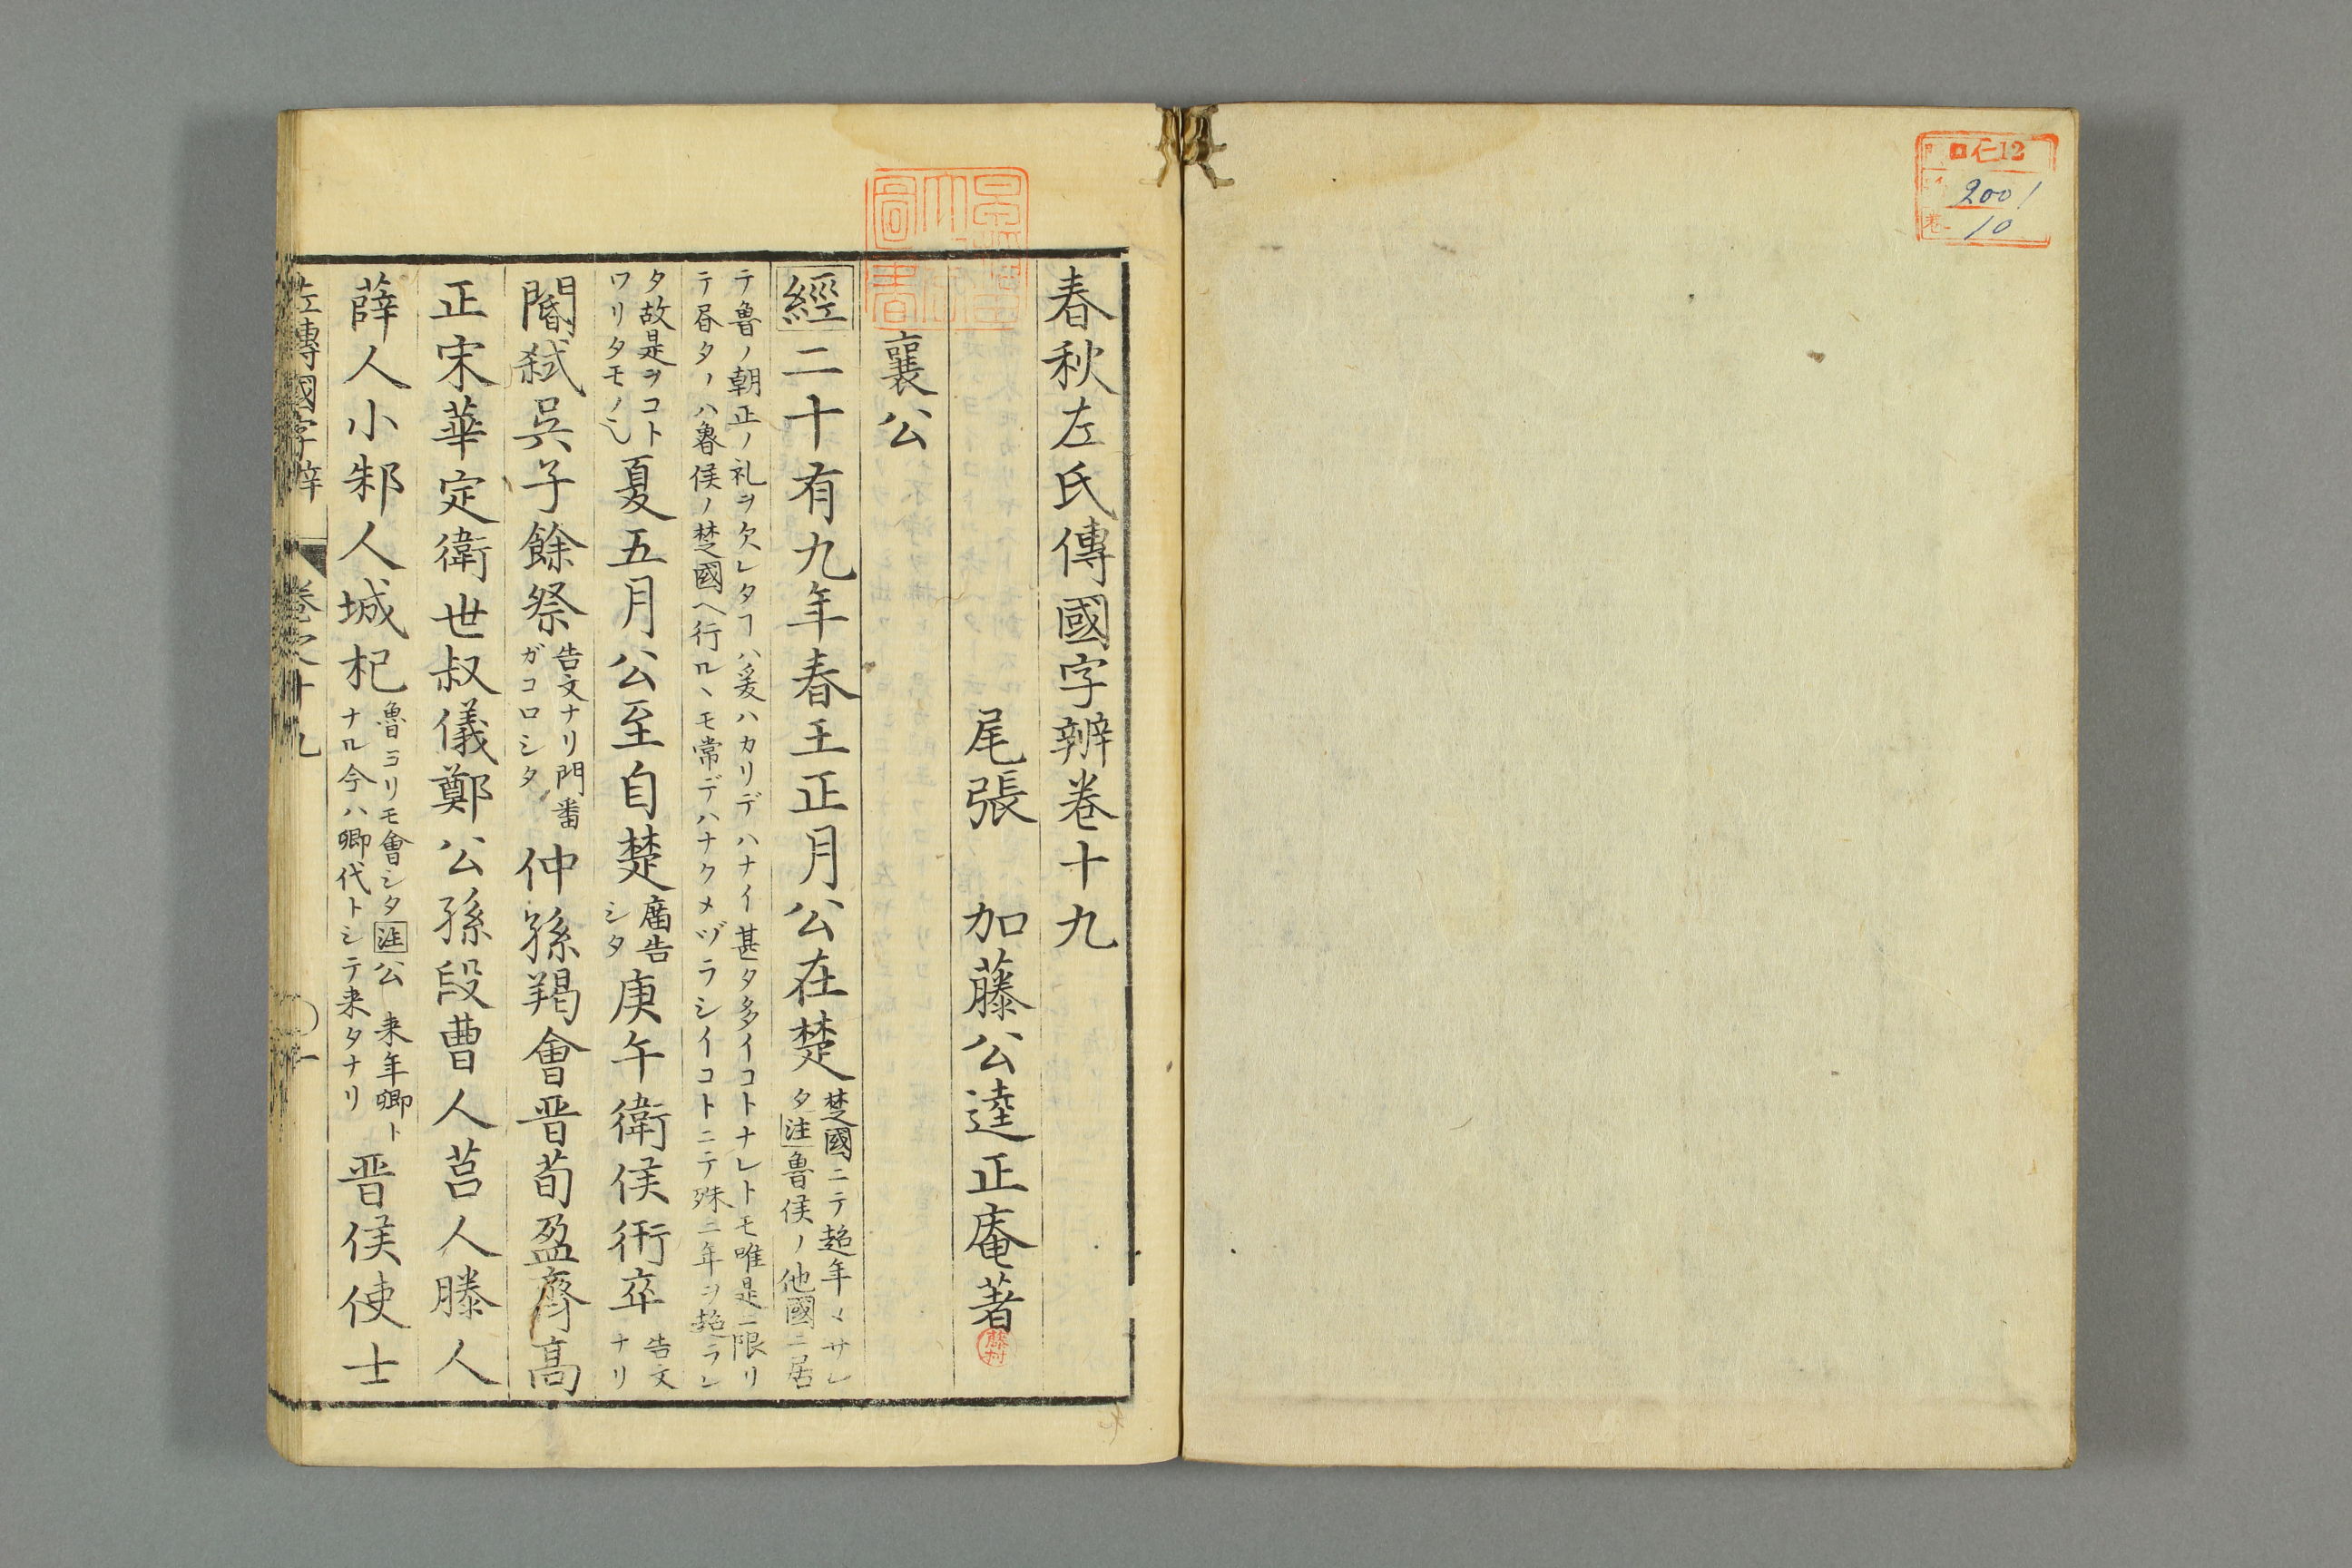 口仁12
2001
10
春秋左氏傳國字辨卷十九
尾張 加藤公逵正庵著
襄公
經二十有九年春王正月公在楚
楚國ニテ越年〻サレ
タ注魯侯ノ他國ニ居
テ魯ノ朝正ノ礼ヲ欠レタヿハ爰ハカリデハナイ甚タ多イコトナレトモ唯是ニ限リ
テ昏タノハ魯侯ノ楚國ヘ行ルヽモ常デハナクメヅラシイコトニテ殊ニ年ヲ越ラレ
タ故是ヲコト
ワリタモノ也
夏五月公至自楚
廣告
シタ
庚午衛侯衎卒
告文
ナリ
閽弒吳子餘祭
告文ナリ門番
ガコロシタ
仲孫羯會晋荀盈齊高
正宋華定衛世叔儀鄭公孫段曹人莒人滕人
薛人小邾人城杞
魯ヨリモ會シタ注公 来年卿ト
ナル今ハ卿代トシテ来タナリ
晋侯使士
左傳國字辨 卷之十九 一